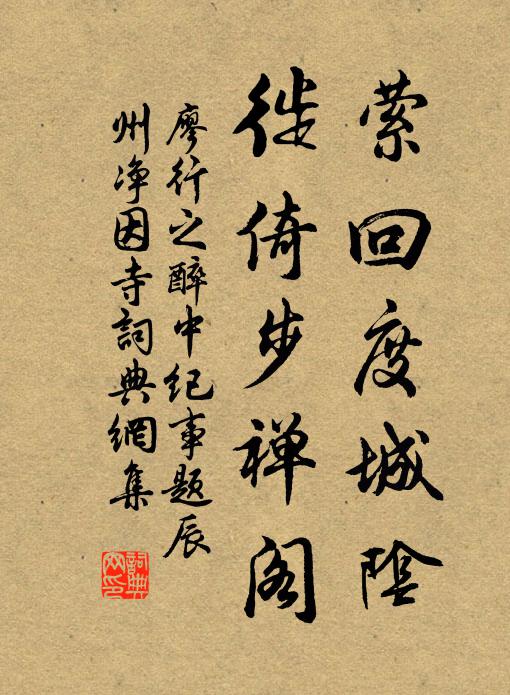 萦回度城陰
徙倚步禅阁
廖行之醉中纪事题辰
州净因寺詞典網集
詞典网印